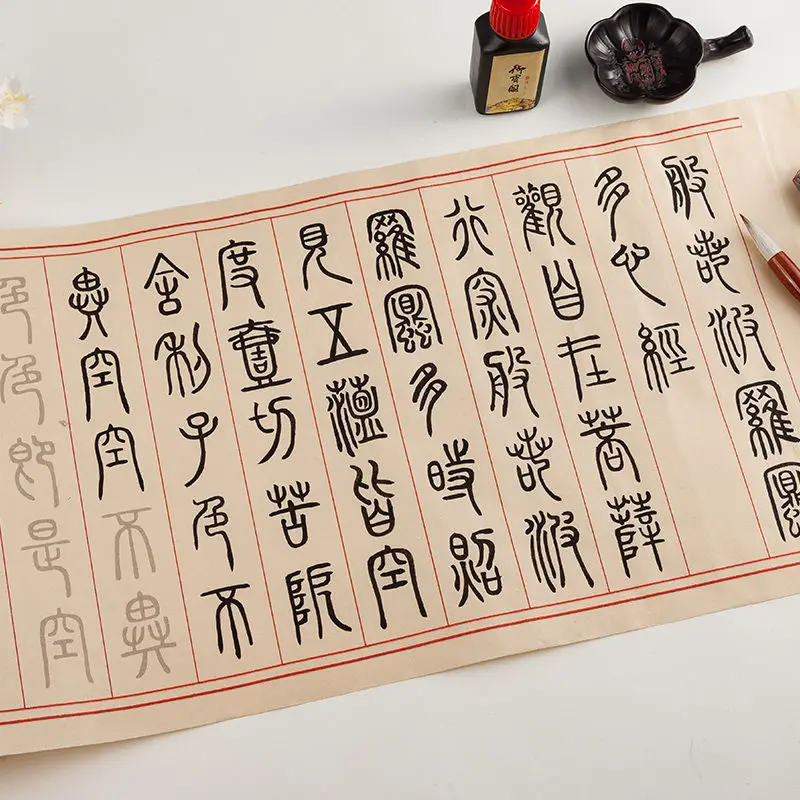 般若波羅蜜
多心經
觀自在菩薩
行深般若波
羅蜜多時照
見五蘊皆空
度壹切苦阨
舍利子色不
異空空不異
色色即是空
御寶閣